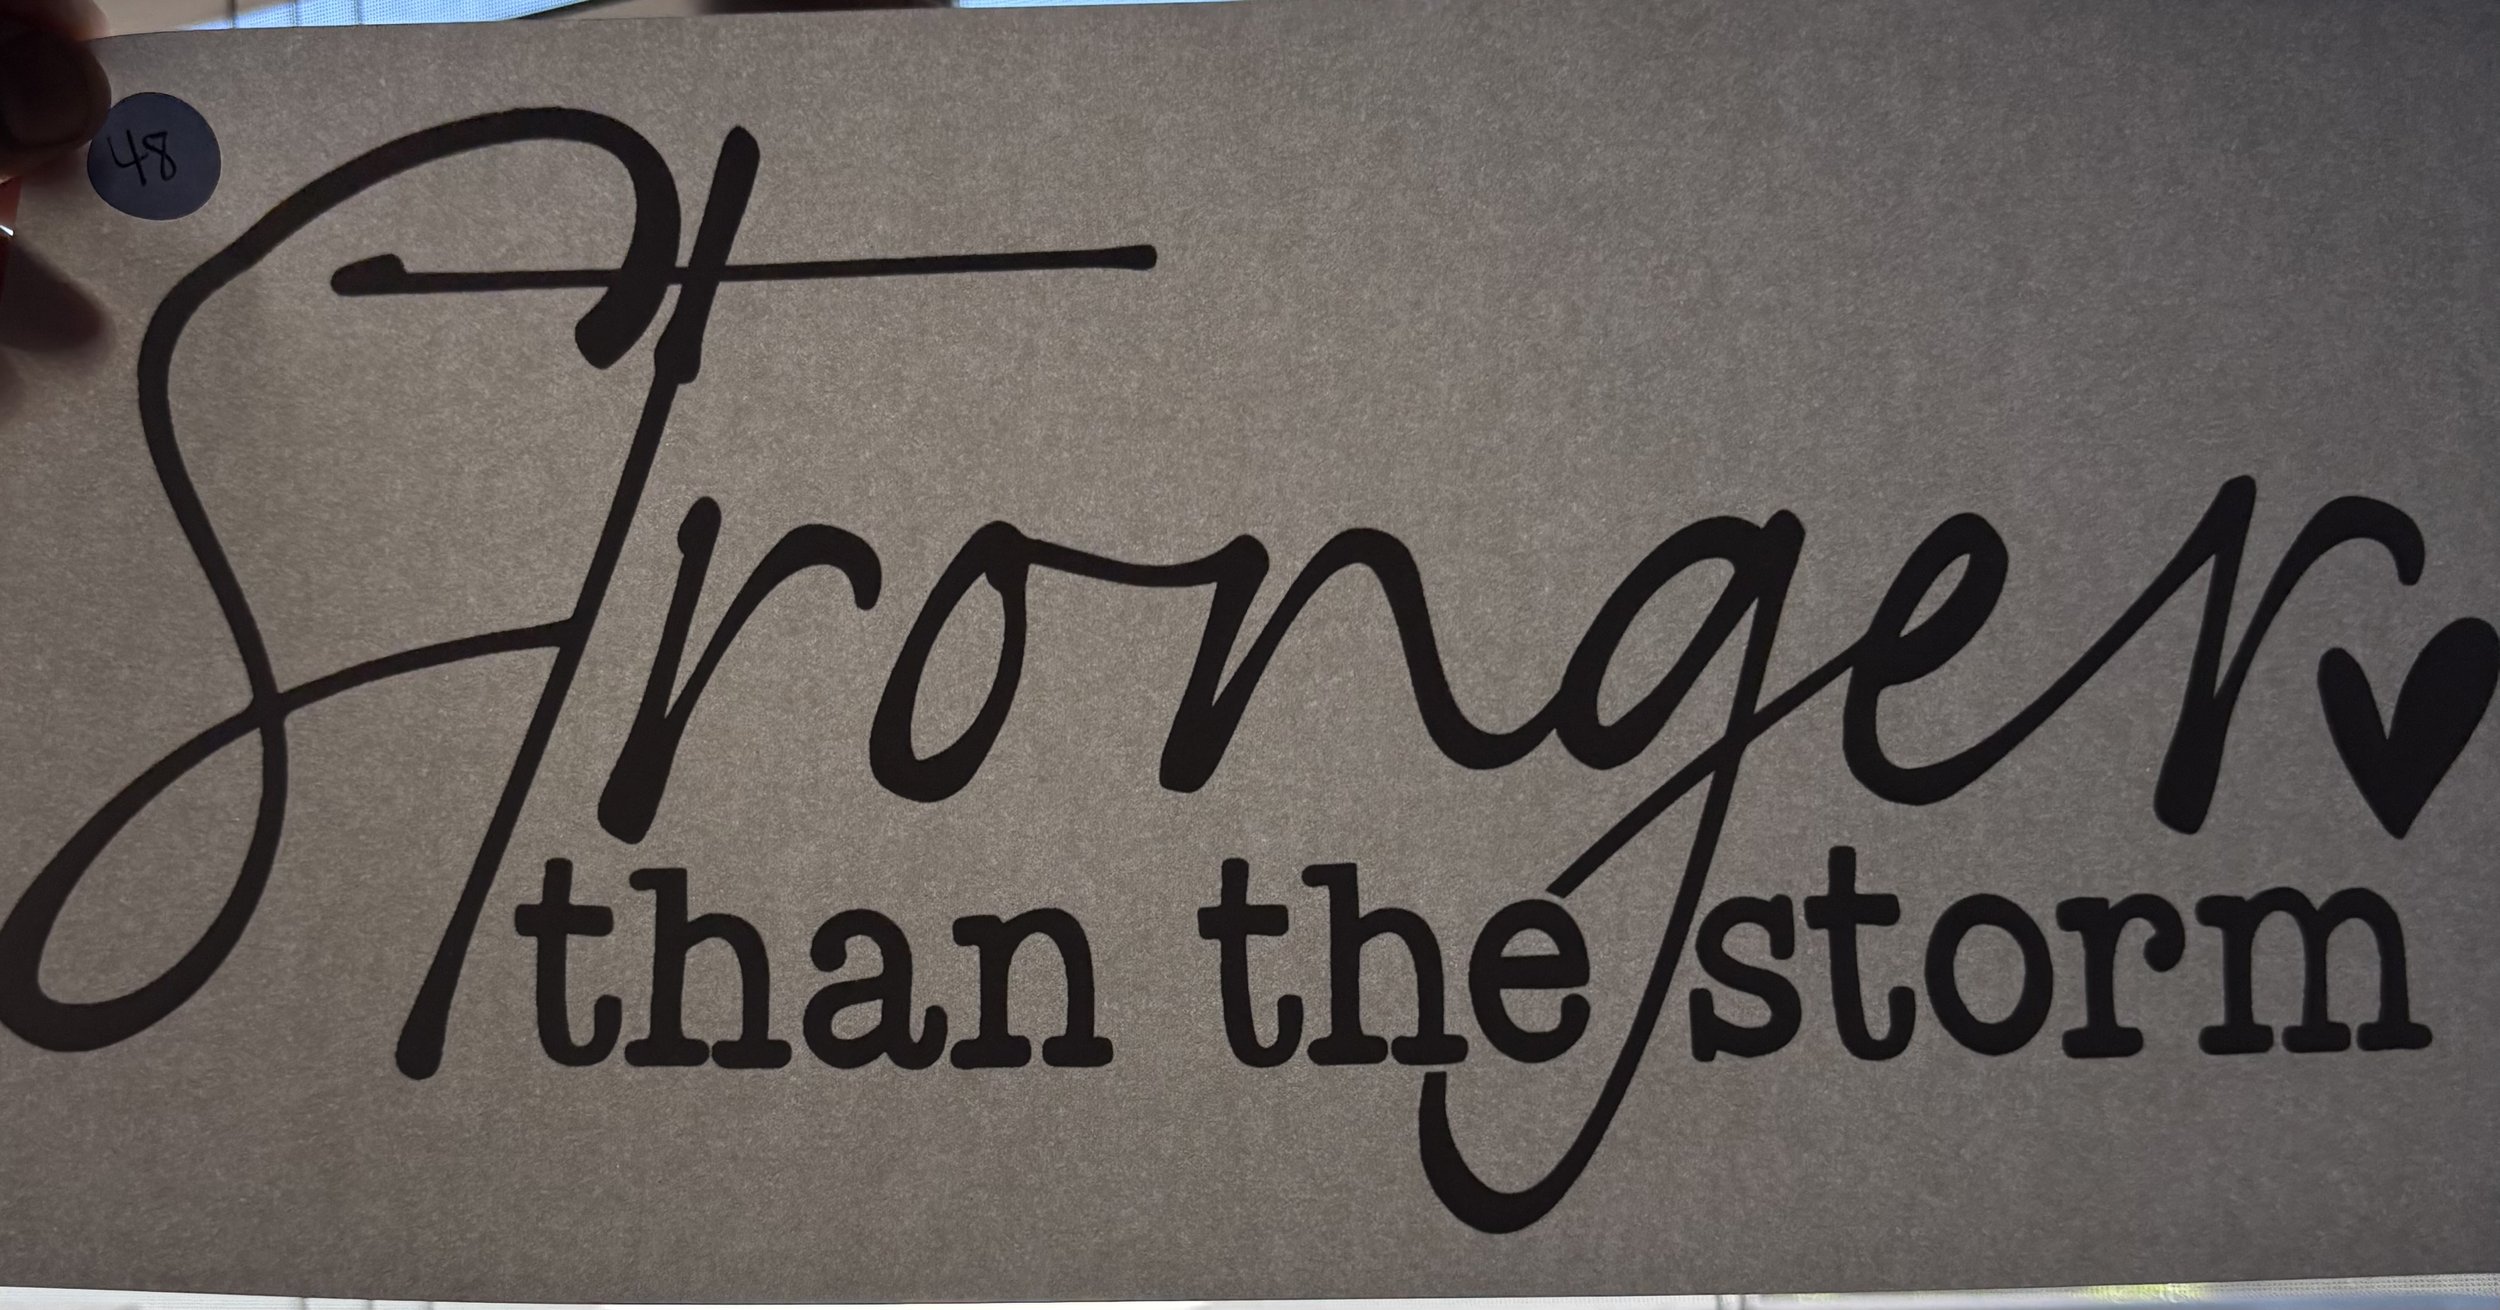 48
Stronger
than the storm